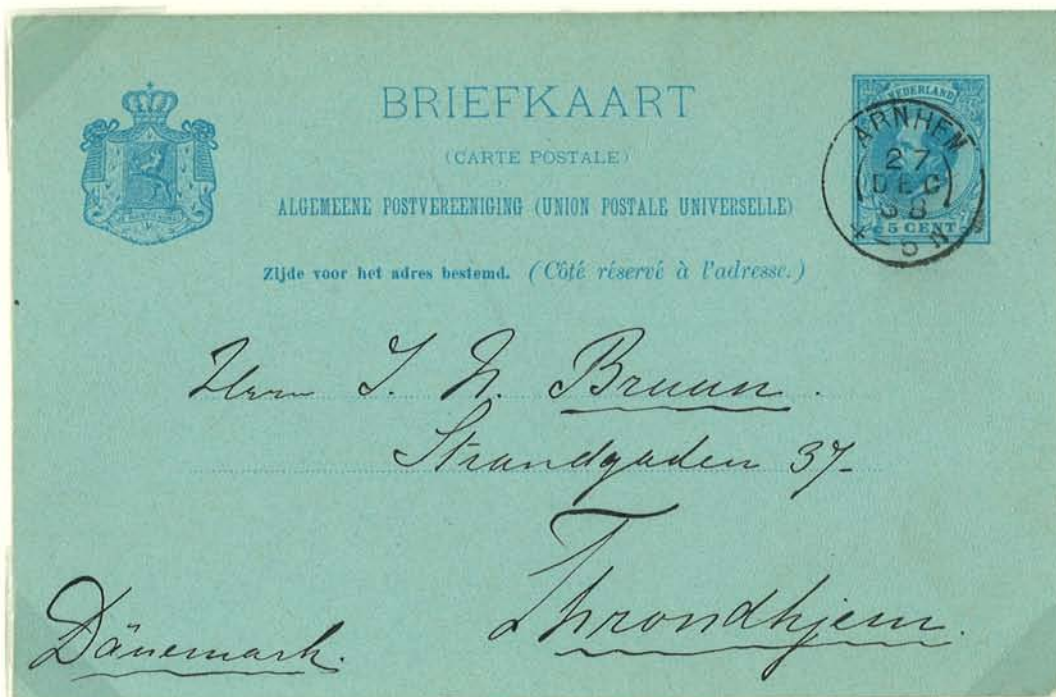 BRIEFKAART
(CARTE POSTALE)
ALGEMEENE POSTVEREENIGING (UNION POSTALE UNIVERSELLE)
Zijde voor het adres bestemd. (Côté réservé à l'adresse.)
NEDERLAND
5 CENT
ARNHEM
27
DEC
88
5 N
Herrn J. N. Bruun.
Strandgaden 37-
Throndhjem.
Dänemark.